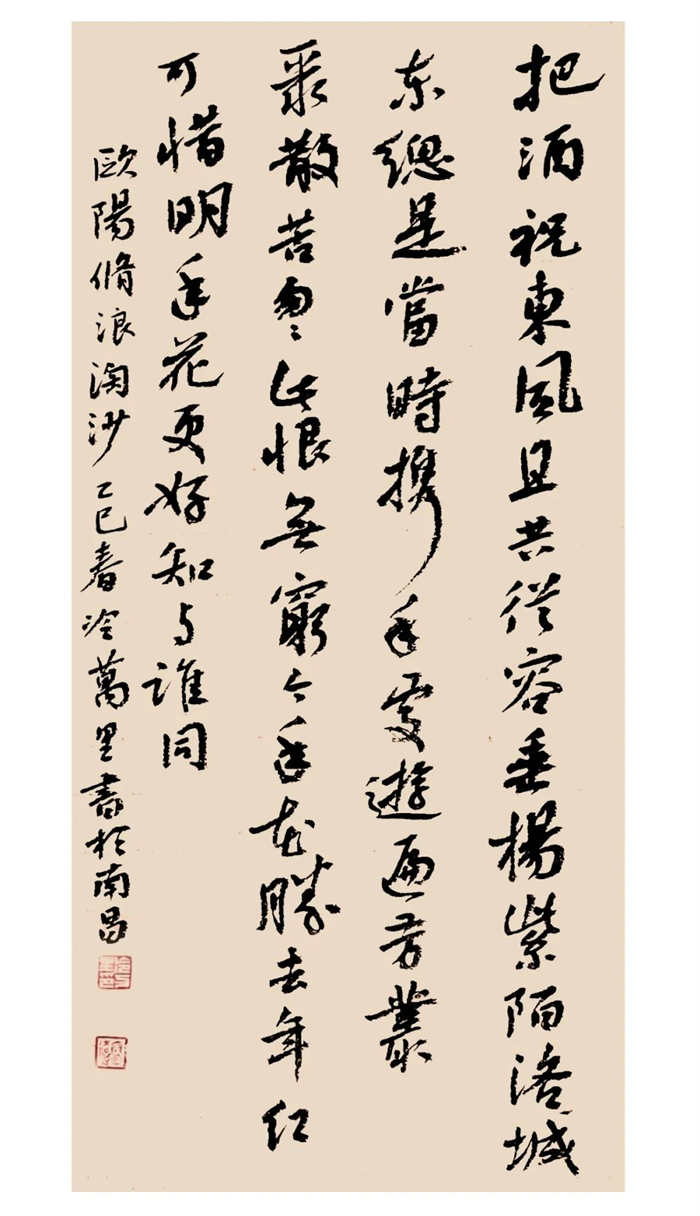 把酒祝東風且共從容垂楊紫陌洛城
东總是當時携手處遊遍芳叢
聚散苦匆匆此恨無窮今年花勝去年紅
可惜明年花更好知与誰同
歐陽脩浪淘沙乙巳春冷萬里書於南昌